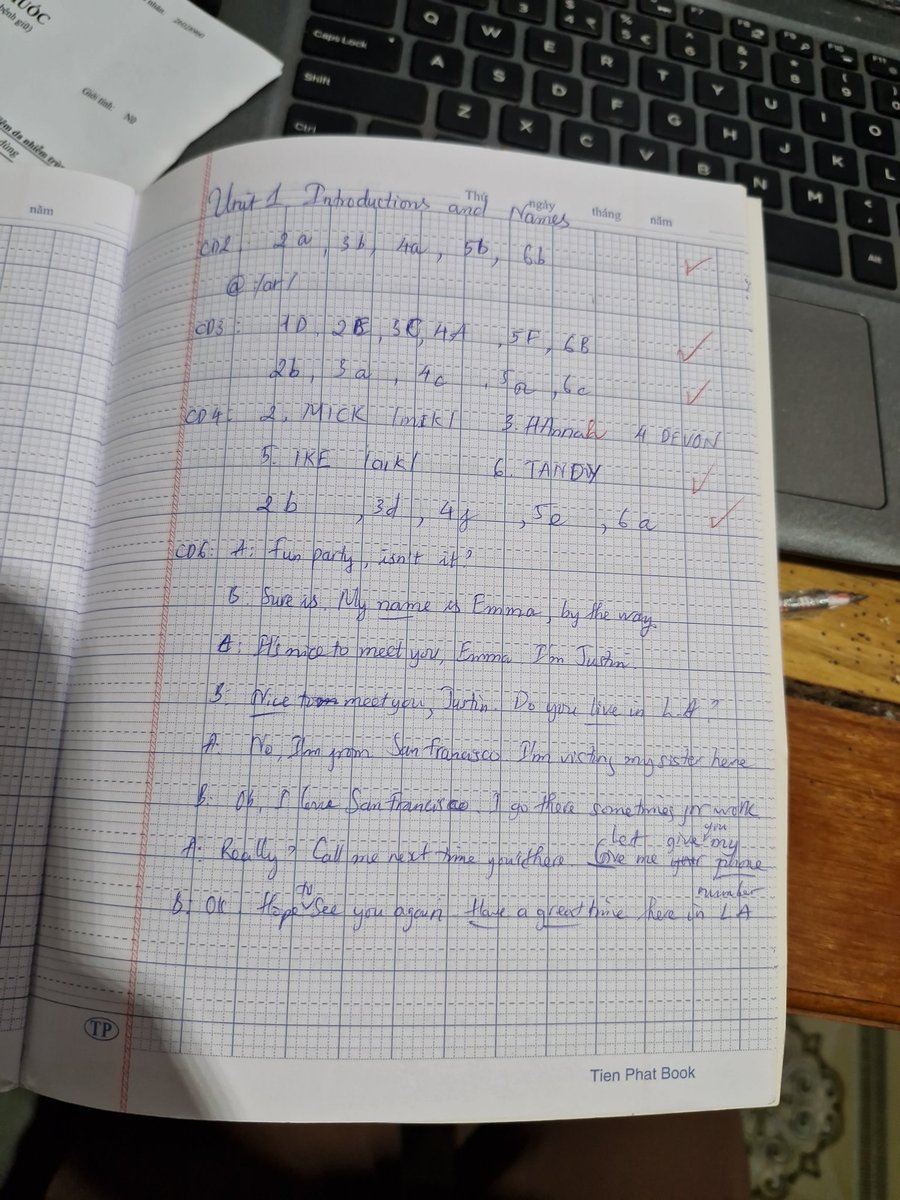 ƯỚC
bệnh giữ)
nhân
Giới tính: Nữ
dùng
Caps Lock Q W E R T Y U I O
Shift A S D F G H J K L
Ctrl Z X C V B N M
Alt
năm
Thứ ngày tháng năm
Unit 1 Introductions and Names
CD2 2a, 3b, 4a, 5b, 6b
@ /ar/
CD3: 1D, 2E, 3C, 4A, 5F, 6B
2b, 3a, 4c, 5a, 6c
CD4: 2. MICK /mik/ 3. HAnnah 4 DEVON
5. IKE /aik/ 6. TANDY
2b, 3d, 4f, 5e, 6a
CD6: A: Fun party, isn't it?
B. Sure is. My name is Emma, by the way.
A: It's nice to meet you, Emma I'm Justin.
B: Nice to meet you, Justin. Do you live in L.A?
A. No, I'm from San francisco I'm visting my sister here
B. Oh, I love San Francisco I go there sometimes for work
Let give you my
A: Really? Call me next time you're there Give me your phone
number
B: OK. Hope to See you again. Have a great time here in LA
TP
Tien Phat Book